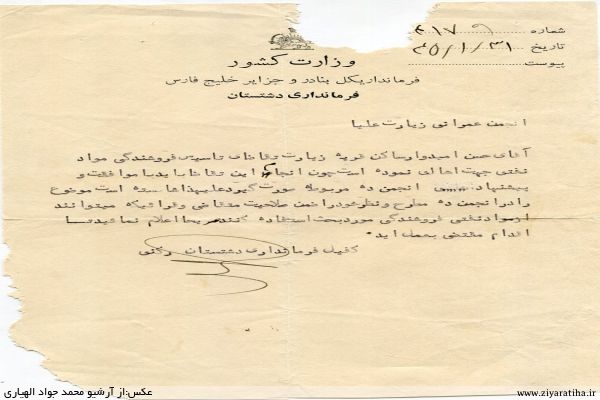 شماره ۴۱۷۹
تاریخ ۴۵/۱/۳۱
پیوست
وزارت کشور
فرمانداریکل بنادر و جزایر خلیج فارس
فرمانداری دشتستان
انجمن عمرانی زیارت علیا
آقای حسن امیدوار ساکن قریه زیارت تقاضای تاسیس فروشندگی مواد
نفتی جهت اهالی نموده است چون انجام این تقاضا باید با موافقت و
پیشنهاد انجمن ده مربوطه صورت گیرد علیهذا شایسته است موضوع
را در انجمن ده مطرح و نظر خود را ضمن صلاحیت متقاضی و قرائیکه میتوانند
از مواد نفتی فروشندگی مورد بحث استفاده کنند صریحا اعلام نمائید تا
اقدام مقتضی بعمل اید
کفیل فرمانداری دشتستان
عکس:از آرشیو محمد جواد الهیاری
www.ziyaratiha.ir